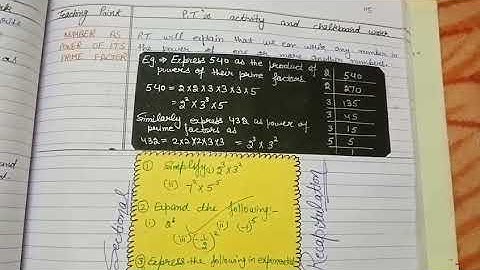 115
Teaching Point
P.T's activity and chalkboard work
NUMBER AS
POWER OF ITS
PRIME FACTOR
P.T will explain that we can write any number to
the power of one or more another numbers.
Eg. → Express 540 as the product of
powers of their prime factors
540 = 2×2×3×3×3×5
= 2² × 3³ × 5
Similarly express 432 as power of
prime factors as
432 = 2×2×2×3×3 = 2³ × 3²
2 540
2 270
3 135
3 45
3 15
5 5
1
Sectional
Recapitulation
① Simplify (i) 2³ × 3²
(ii) 7² × 5³
② Expand the following:-
(i) 2⁶
(ii) (-1)⁵
(iii)
③ Express the following in exponential